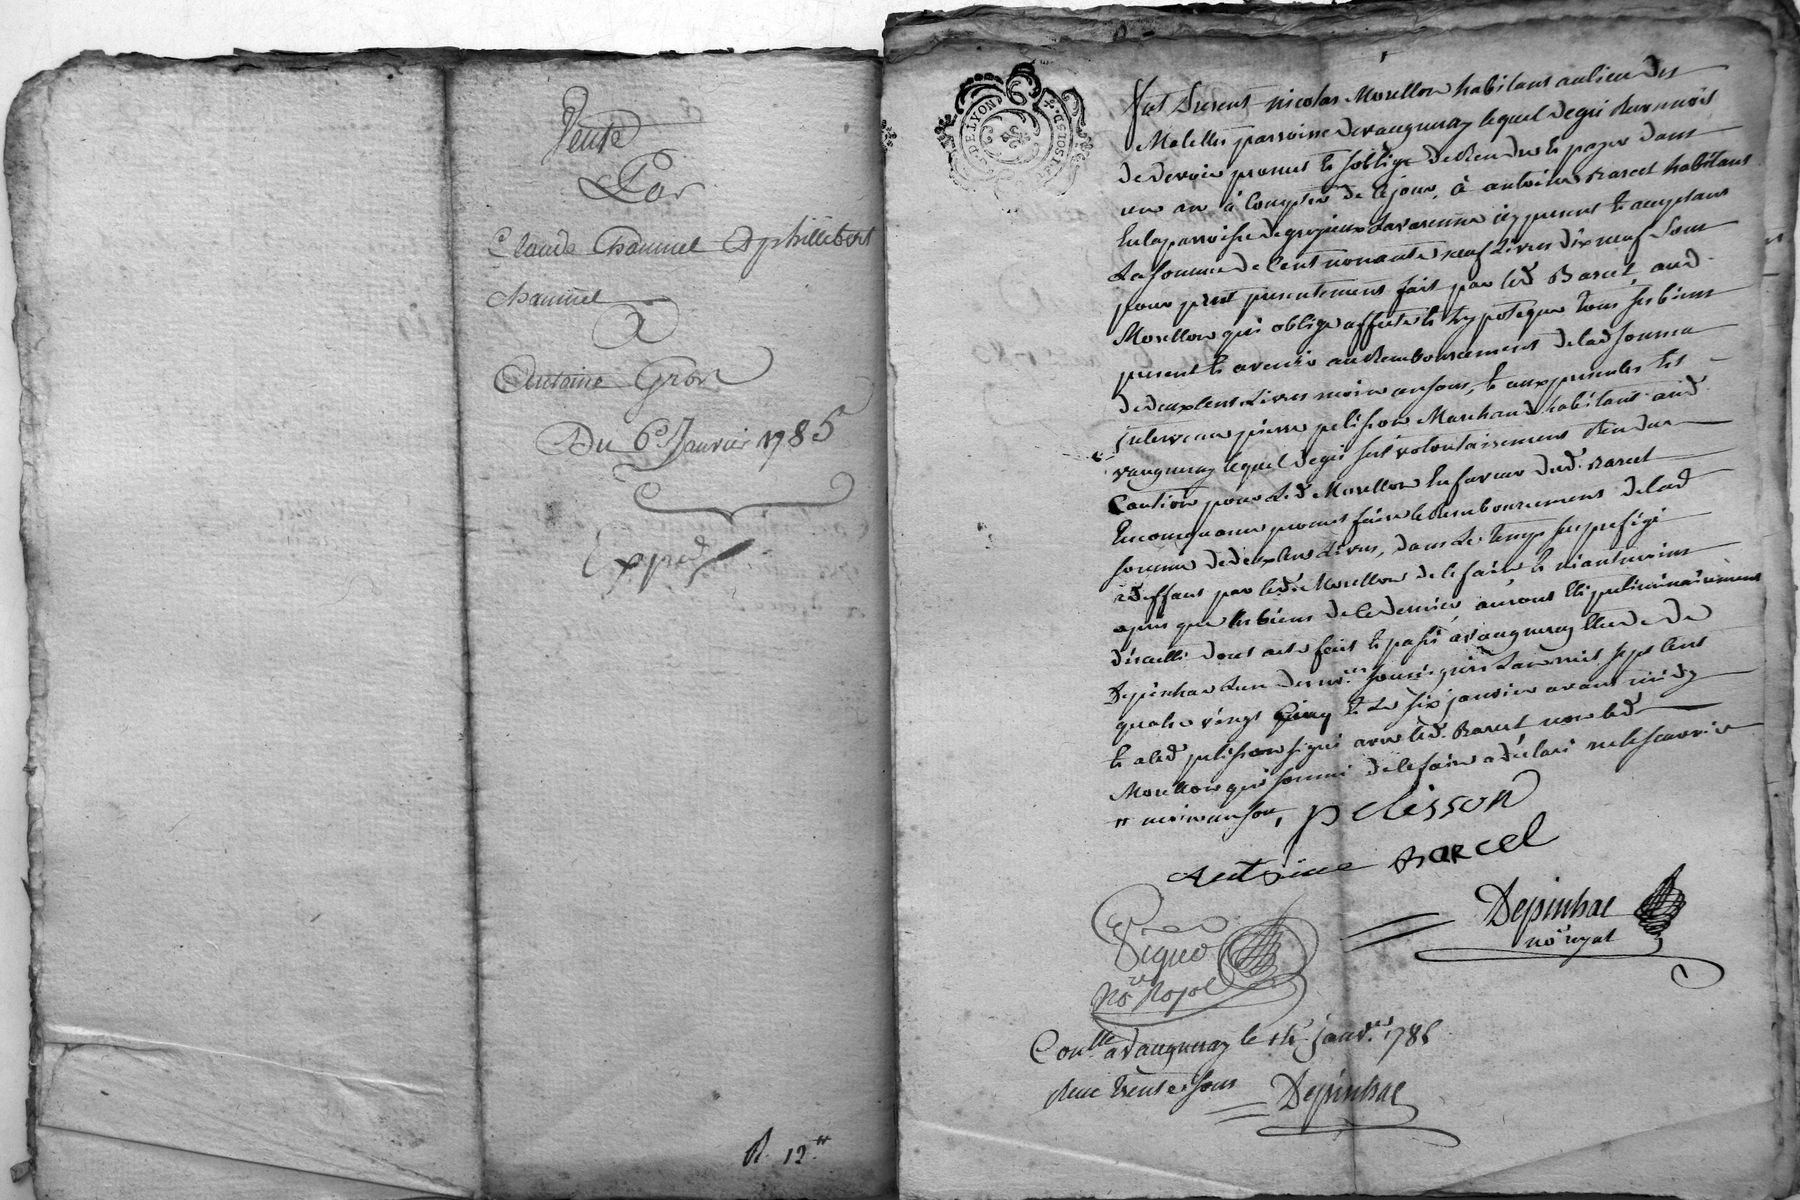 Vente
Par
Claude Chamuel & philibert
chamuel
à
Antoine Gros
Du 6e. Janvier 1785
Exped
R. 12tt
G. DE LYON
2. SIOLS P.F.
Fut present nicolas Morellon habitant au lieu des
Molelles parroisse de vaugneray lequel de gré reconnoit
de devoir promet & s'oblige de Rendre & payer dans
un an à Compter de ce jour, à antoine Barcel habitant
En la parroisse de grezieux Lavarenne icy present & acceptant
La somme de Cent nonante neuf Livres dix neuf Sous
pour prêt presentement fait par led. Barcel, aud.
Morellon qui oblige affecte & hypoteque tous ses biens
present & avenir au Remboursement de lad somme
de deux cent Livres moins un sous, & aux presentes est
intervenu pierre pelisson Marchand habitant aud.
vaugneray lequel de gré s'est volontairement Rendu
Caution pour Led. Morellon En faveur dud. Barcel
En consequence promet faire le Remboursement de lad
somme de deux cens Livres, dans Le temps susprefigé
a deffaut par led. Morellon de le faire & néantmoins
apres que les biens de ce dernier auront Eté preliminairement
discuttés dont acte fait & passé à vaugneray Etude de
Depinhac L'un des nores. soussignés L'an mil sept cent
quatre vingt Cinq & Le six janvier avant midy
& a led pelisson signé avec led. Barcel non led
Morellon qui sommé de le faire a déclaré ne le scavoir
" moins un sou, pelisson
Antoine Barcel
Depinhac
nore royal
nore Royal
Conllé a vaugneray le 14. janver. 1785
Reçu trente sous Depinhac